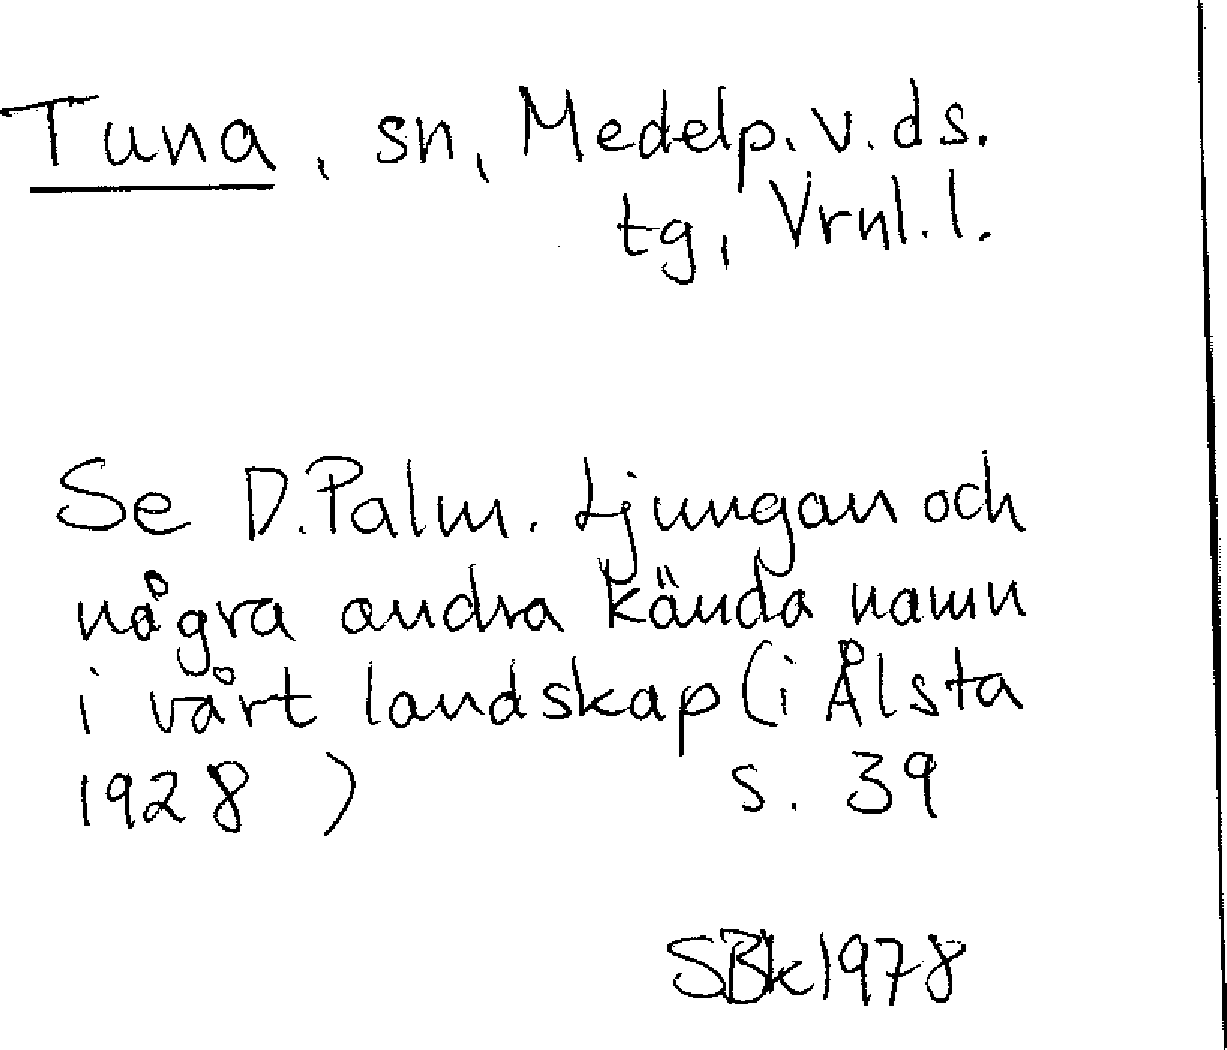 Tuna, sn, Medelp. v. ds.
tg, Vrnl. l.
Se D. Palm. Ljungan och
några andra kända namn
i vårt landskap (i Ålsta
1928) s. 39
SBk 1978